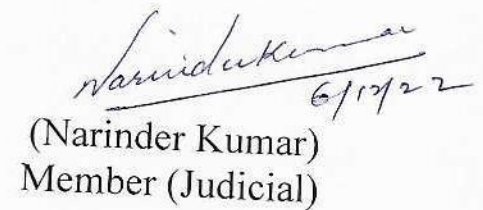 Narinder Kumar
6/12/22
(Narinder Kumar)
Member (Judicial)